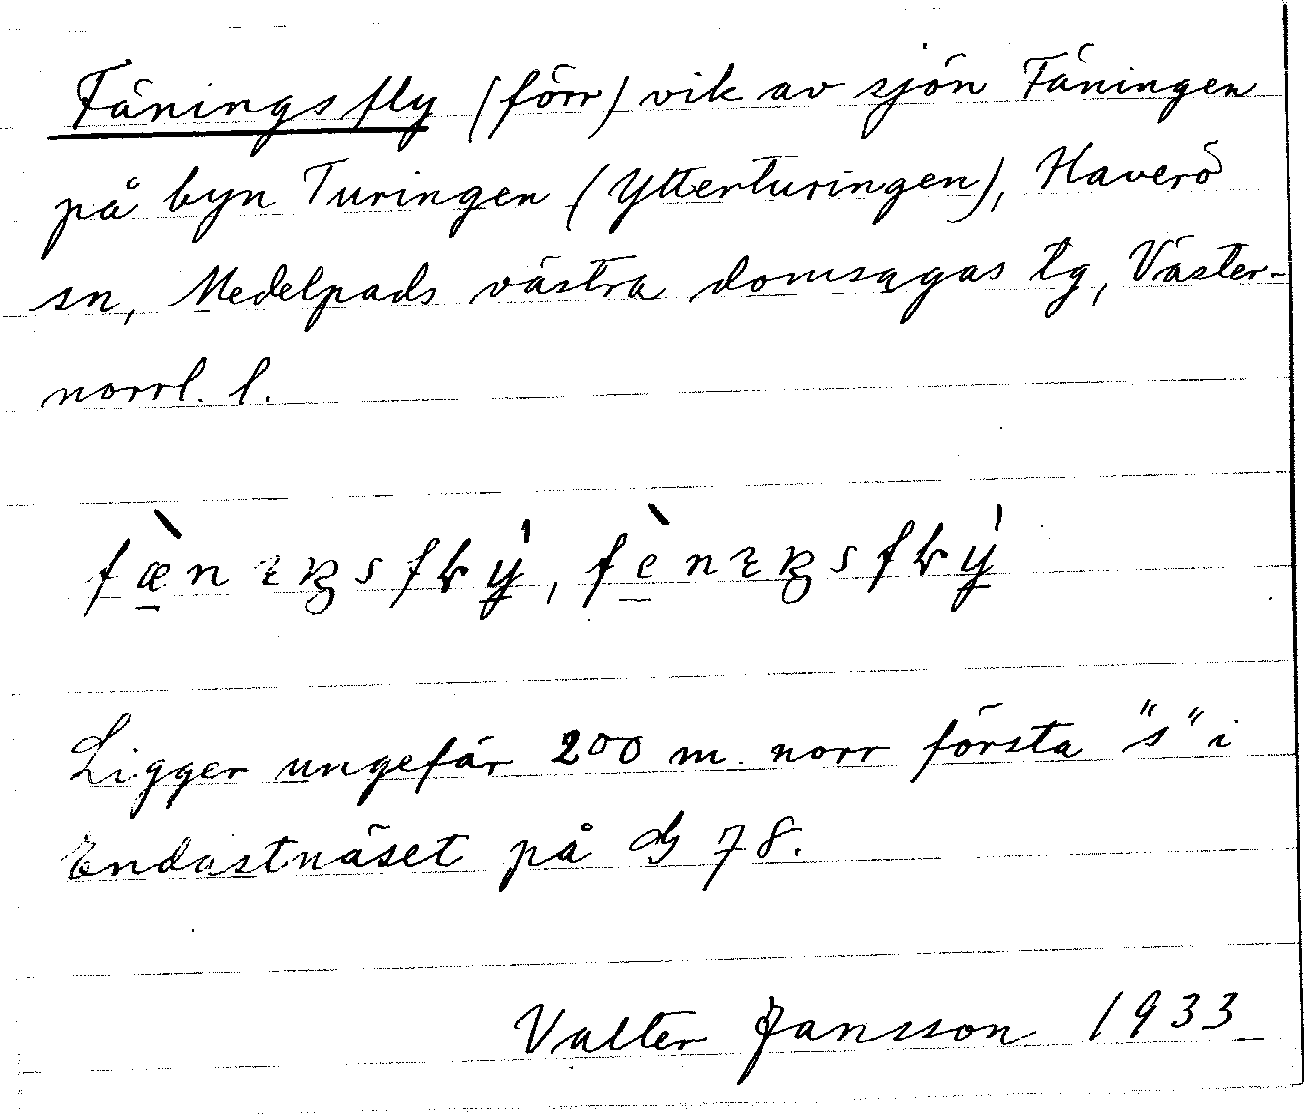 Fäningsfly (förr) vik av sjön Fäningen
på byn Turingen (Ytterturingen), Haverö
sn, Medelpads västra domsagas tg, Väster-
norrl. l.
Ligger ungefär 200 m. norr första "s" i
Endastnäset på G 78.
Valter Jansson 1933